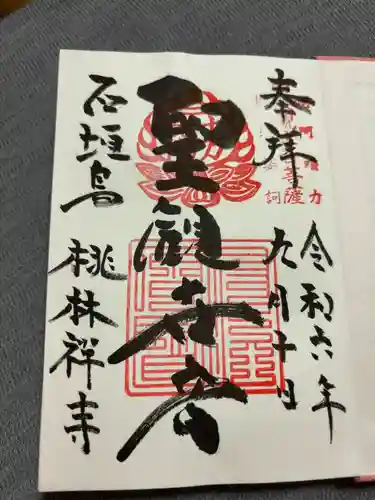 奉拝
令和六年
九月十日
聖観世音
石垣島
桃林祥寺